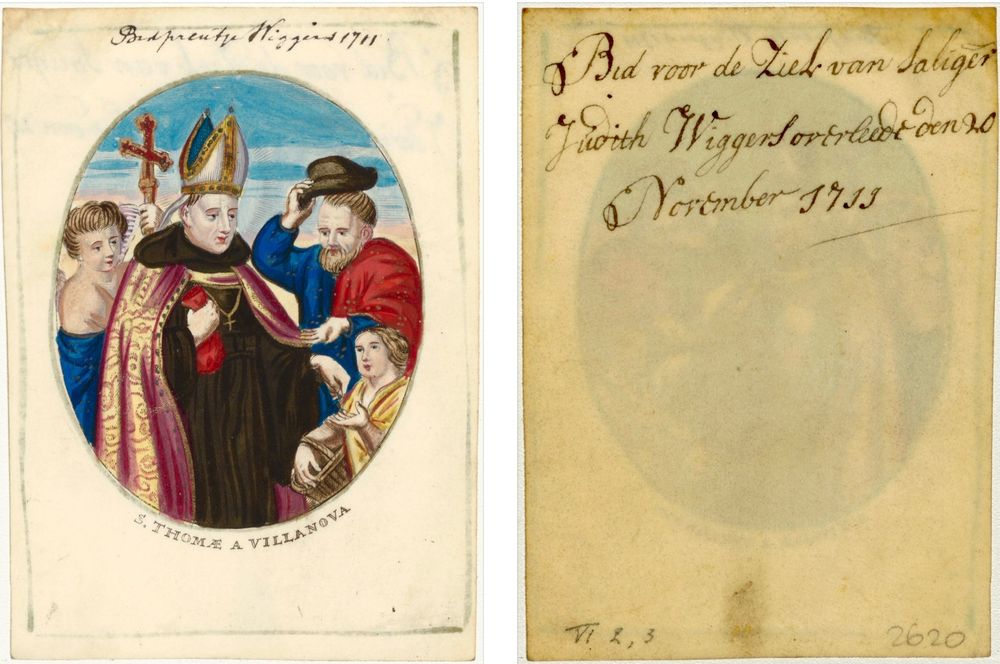 Bidprentje Wiggers 1711
S. THOMÆ A VILLANOVA
Bid voor de Ziel van Saliger
Judith Wiggers overleede den 20
November 1711
VI 2, 3
2620